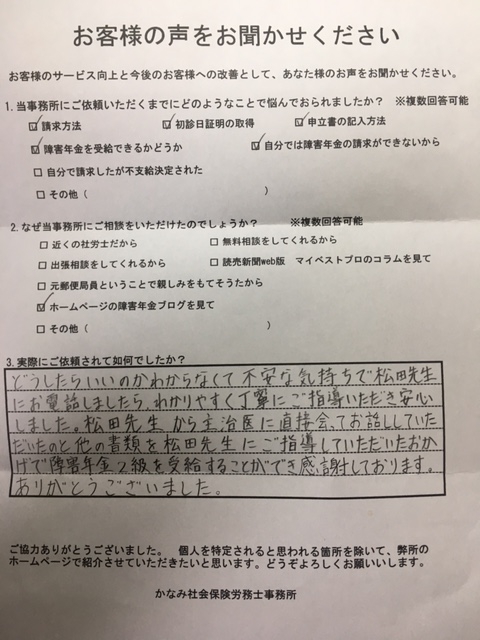 お客様の声をお聞かせください
お客様のサービス向上と今後のお客様への改善として、あなた様のお声をお聞かせください。
1.当事務所にご依頼いただくまでにどのようなことで悩んでおられましたか? ※複数回答可能
☑ 請求方法 ☑ 初診日証明の取得 ☑ 申立書の記入方法
☑ 障害年金を受給できるかどうか ☑ 自分では障害年金の請求ができないから
□ 自分で請求したが不支給決定された
□ その他( )
2.なぜ当事務所にご相談をいただけたのでしょうか? ※複数回答可能
□ 近くの社労士だから □ 無料相談をしてくれるから
□ 出張相談をしてくれるから □ 読売新聞web版 マイベストプロのコラムを見て
□ 元郵便局員ということで親しみをもてそうだから
☑ ホームページの障害年金ブログを見て
□ その他( )
3.実際にご依頼されて如何でしたか?
どうしたらいいのかわからなくて不安な気持ちで松田先生
にお電話しましたら、わかりやすく丁寧にご指導いただき安心
しました。松田先生から主治医に直接会ってお話ししていた
だいたのと他の書類を松田先生にご指導していただいたおか
げで障害年金2級を受給することができ感謝しております。
ありがとうございました。
ご協力ありがとうございました。 個人を特定されると思われる箇所を除いて、弊所の
ホームページで紹介させていただきたいと思います。どうぞよろしくお願いいします。
かなみ社会保険労務士事務所